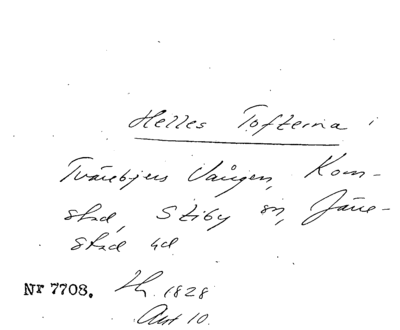 Helles Tofterna i
Tvärebjers Vången, Kom-
stad, Stiby sn, Järe-
stad hd
Nr 7708. Lh. 1828
Akt 10.